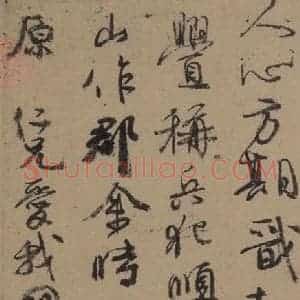 人心方期戢
舋稱兵犯順
山作郡余時
原仁兄愛我